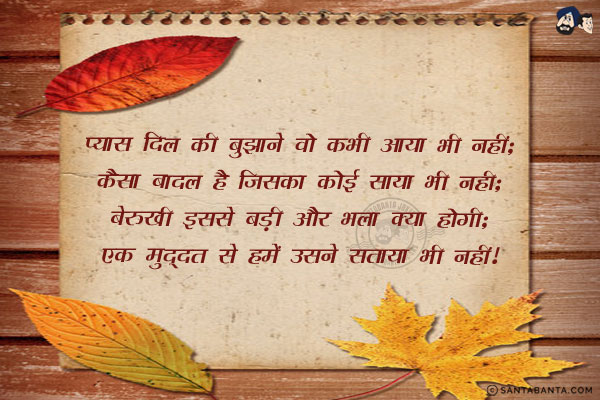 प्यास दिल की बुझाने वो कभी आया भी नहीं;
कैसा बादल है जिसका कोई साया भी नहीं;
बेरुखी इससे बड़ी और भला क्या होगी;
एक मुद्दत से हमें उसने सताया भी नहीं!
© SANTABANTA.COM